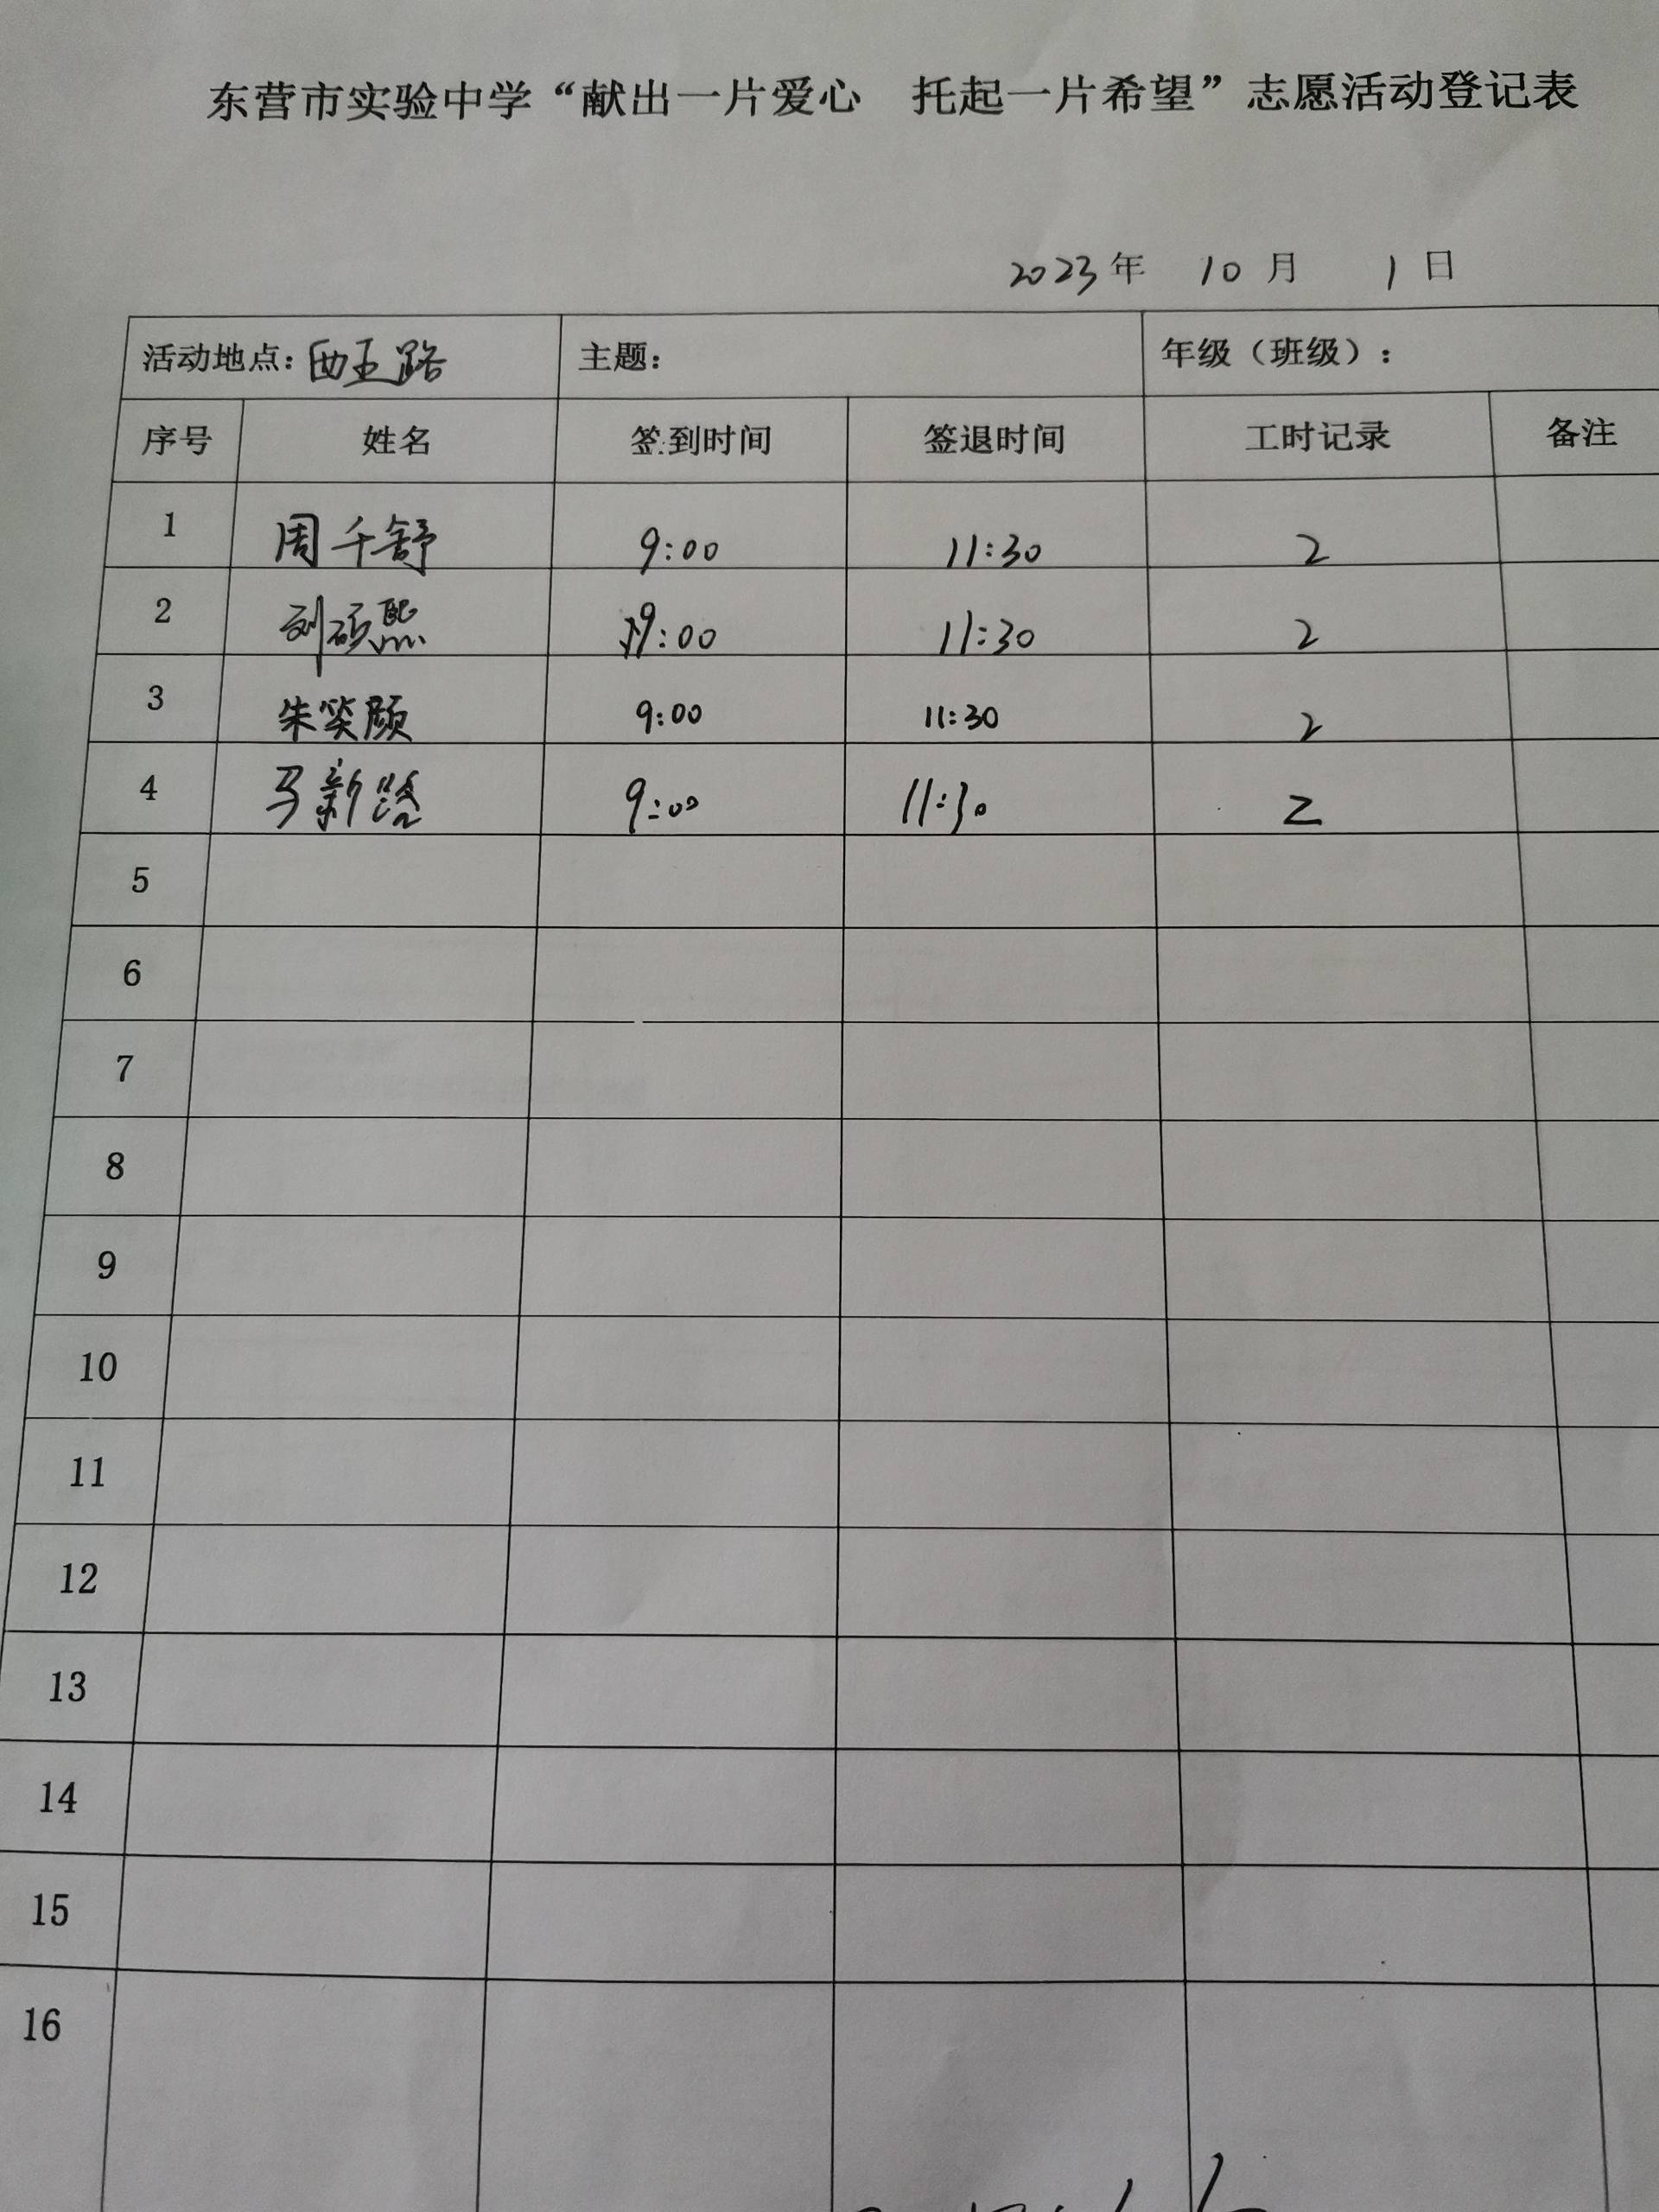 东营市实验中学“献出一片爱心 托起一片希望”志愿活动登记表
2023年 10月 1日
活动地点：西五路 主题： 年级（班级）：
序号 姓名 签到时间 签退时间 工时记录 备注
1 周千舒 9:00 11:30 2
2 刘硕熙 9:00 11:30 2
3 朱笑颜 9:00 11:30 2
4 马新路 9:00 11:30 2
5
6
7
8
9
10
11
12
13
14
15
16